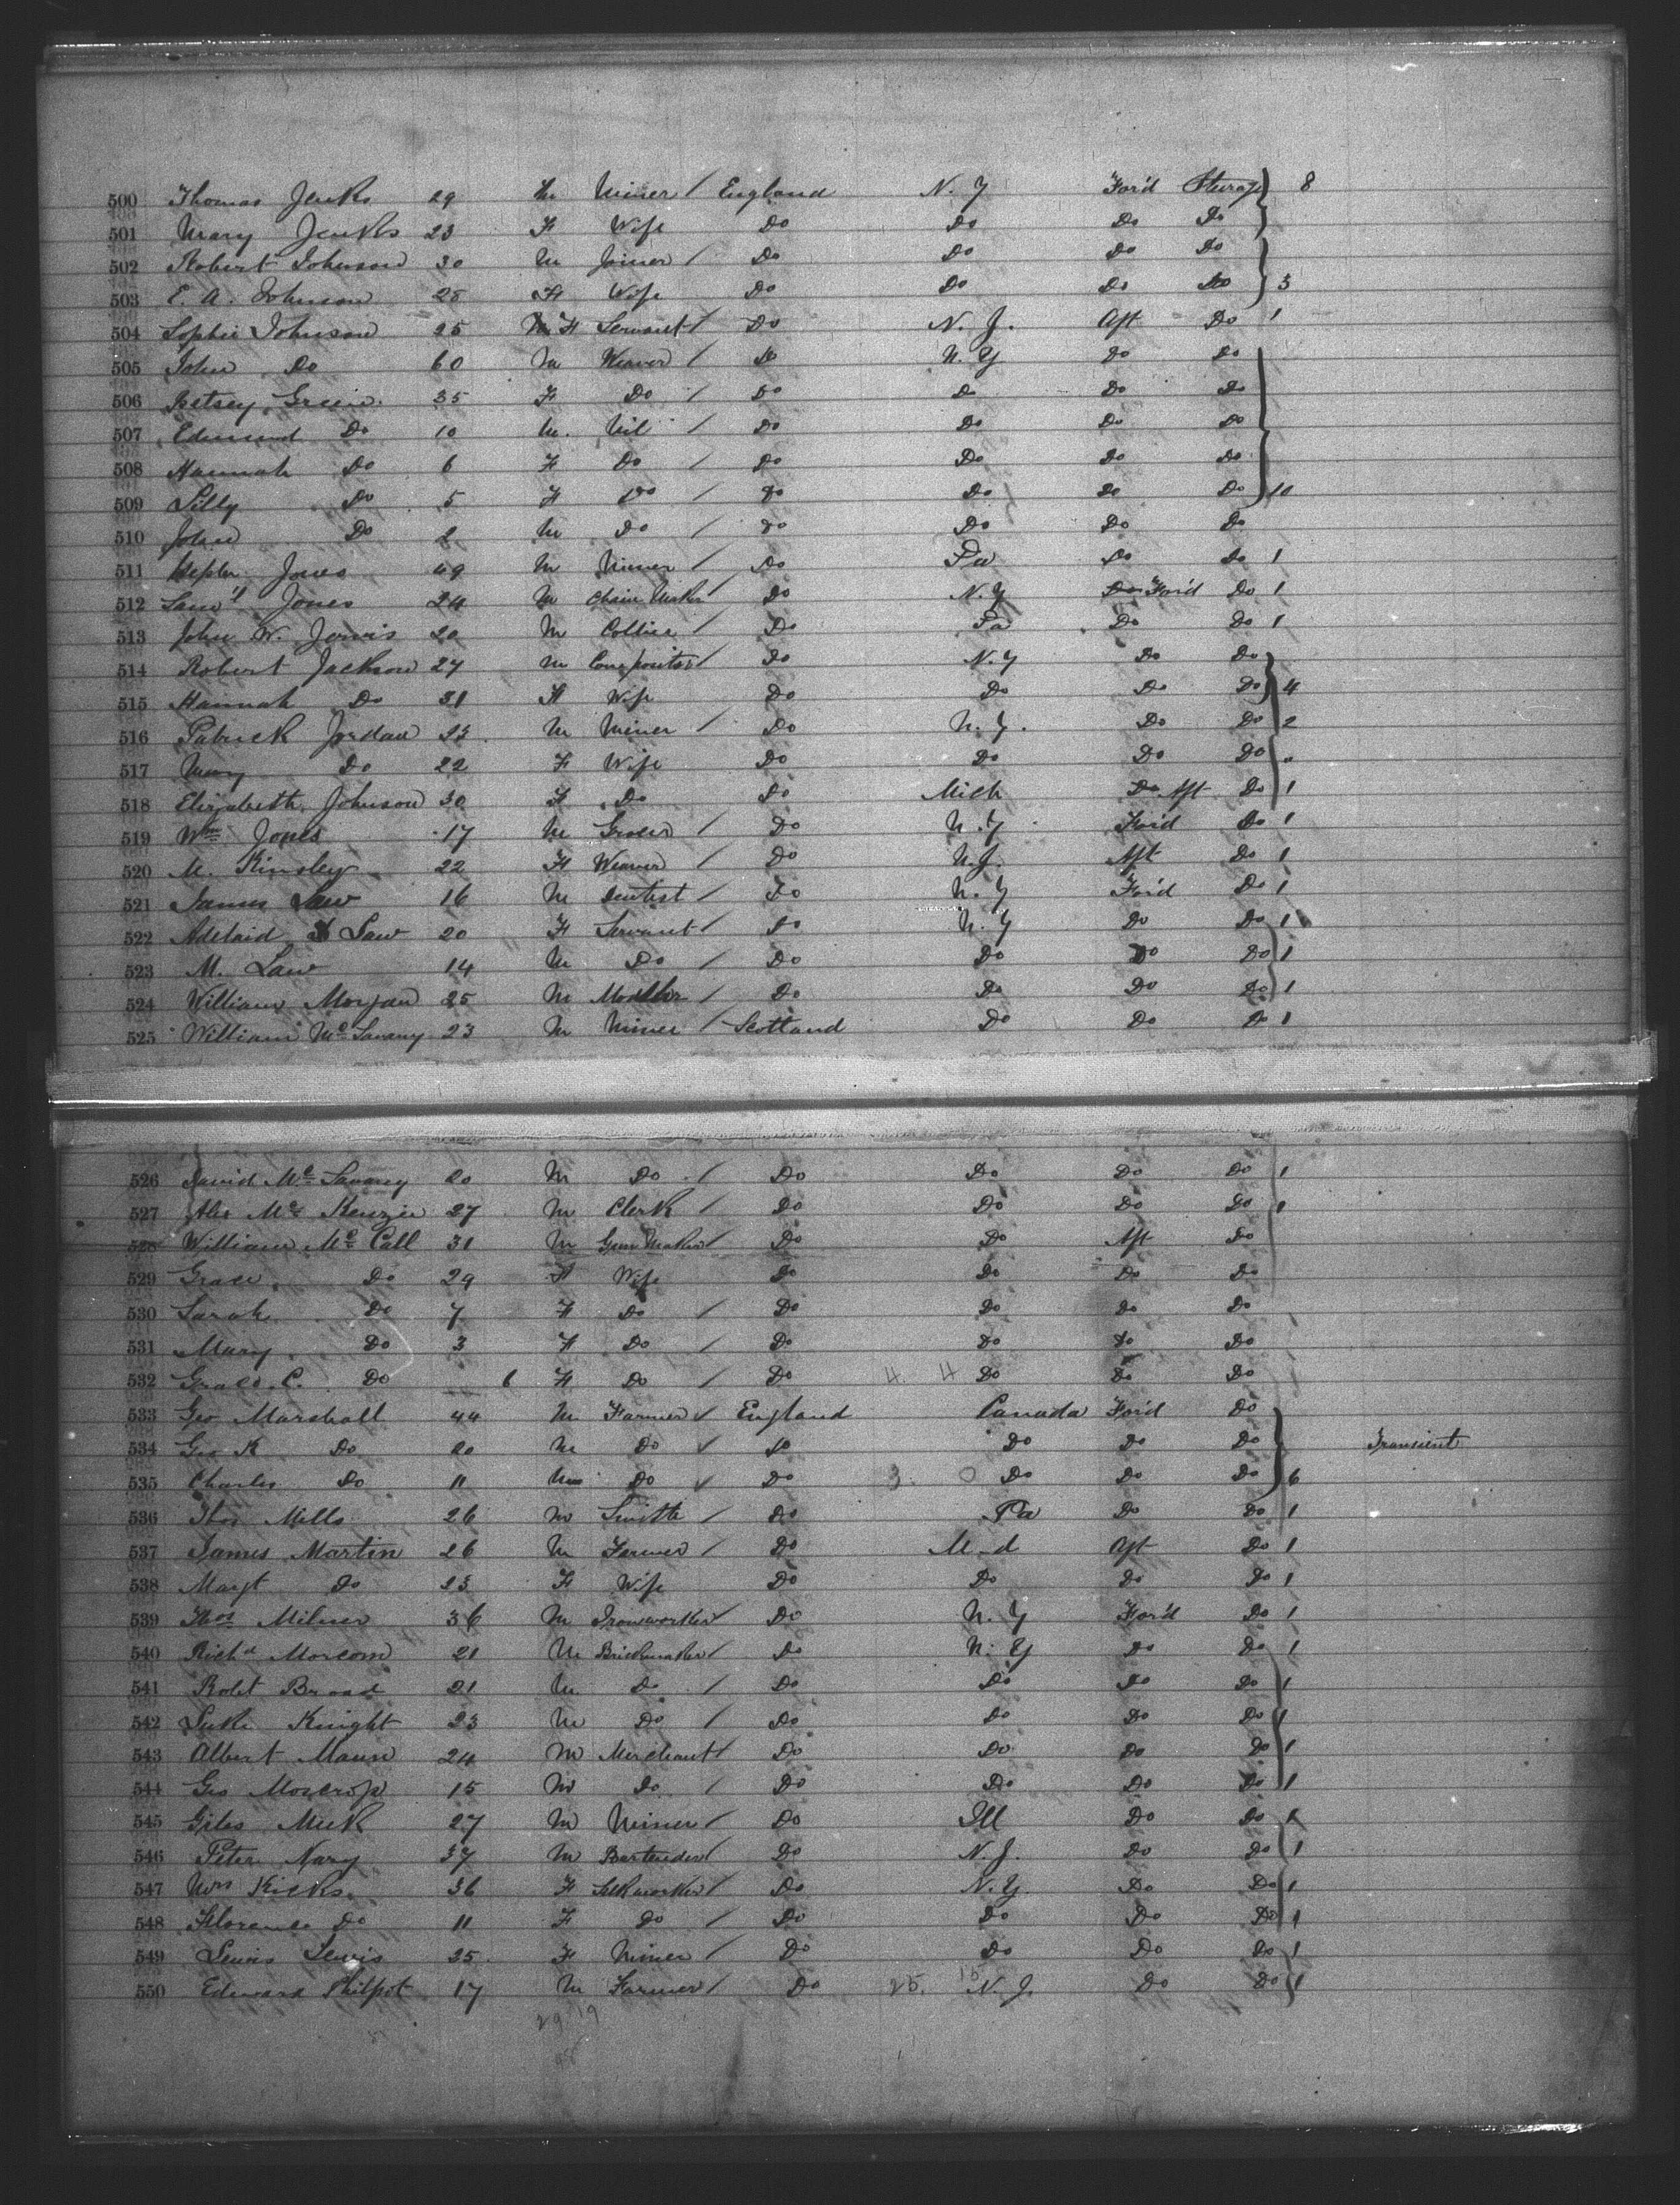 500 Thomas Jenks 29 M Miner / England N.Y For'd Sterage } 8
501 Mary Jenks 23 F Wife Do Do Do Do
502 Robert Johnson 30 M Joiner / Do Do Do Do
503 E. A. Johnson 28 F Wife Do Do Do Do } 3
504 Sophie Johnson 25 F Servant / Do N.J. Aft Do 1
505 John Do 60 M Weaver / Do N.Y Do Do
506 Betsey Green 35 F Do / Do Do Do Do
507 Edmund Do 10 M. Nil / Do Do Do Do
508 Hannah Do 6 F Do / Do Do Do Do
509 Lilly Do 5 F Do / Do Do Do Do } 10
510 John Do 2 M Do / Do Do Do Do
511 Jones 49 M Miner / Do Pa Do Do 1
512 Sam'l Jones 24 M Chain Maker Do N.Y For'd Do 1
513 John W. Jarvis 20 M Collier / Do Pa Do Do 1
514 Robert Jackson 27 M Compositor / Do N.Y Do Do
515 Hannah Do 31 F Wife Do Do Do Do } 4
516 Patrick Jordan 23 M Miner / Do N.Y. Do Do 2
517 Mary Do 22 F Wife Do Do Do Do
518 Elizabeth Johnson 30 F Do Do Mich Aft Do 1
519 Wm Jones 17 M Grocer / Do N.Y For'd Do 1
520 M. Kinsley 22 F Weaver / Do N.J. Aft Do 1
521 James Law 16 M Dentist / Do N.Y For'd Do 1
522 Adelaid Law 20 F Servant / Do N.Y Do Do 1
523 M. Law 14 M Do / Do Do Do Do 1
524 William Morgan 25 M / Do Do Do Do 1
525 William Mc 23 M Miner / Scotland Do Do Do 1
526 David Mc 20 M Do / Do Do Do Do 1
527 Alex Mc Kenzie 27 M Clerk / Do Do Do Do 1
528 William Mc Call 31 M Gun Maker / Do Do Aft Do
529 Grace Do 29 F Wife Do Do Do Do
530 Sarah Do 7 F Do / Do Do Do Do
531 Mary Do 3 F Do / Do Do Do Do
532 Grace C. Do 6 F Do / Do 4 4 Do Do Do
533 Geo Marshall 44 M Farmer ✓ England Canada For'd Do
534 Geo K Do 20 M Do ✓ Do Do Do Do Transient
535 Charles Do 11 M Do ✓ Do 3 0 Do Do Do } 6
536 Thos Mills 26 M Smith / Do Pa Do Do 1
537 James Martin 26 M Farmer / Do M-d Aft Do 1
538 Margt Do 23 F Wife Do Do Do Do 1
539 Thos Milner 36 M Ironworker / Do N.Y For'd Do 1
540 Richd Morcom 21 M Brickmaker / Do N.Y Do Do 1
541 Robt Broad 21 M Do / Do Do Do Do 1
542 Luke Knight 23 M Do / Do Do Do Do 1
543 Albert Mann 24 M Merchant / Do Do Do Do 1
544 Geo Moscrop 15 M Do / Do Do Do Do 1
545 Giles Muck 27 M Miner / Do Ill Do Do 1
546 Peter Nary 37 M Bartender / Do N.J. Do Do 1
547 Wm Kicks 36 F Silkworker / Do N.Y. Do Do 1
548 Florence Do 11 F Do / Do Do Do Do 1
549 Lewis Lewis 25 F Miner / Do Do Do Do 1
550 Edward Philpot 17 M Farmer / Do 25. 15 N.J. Do Do 1
29 19